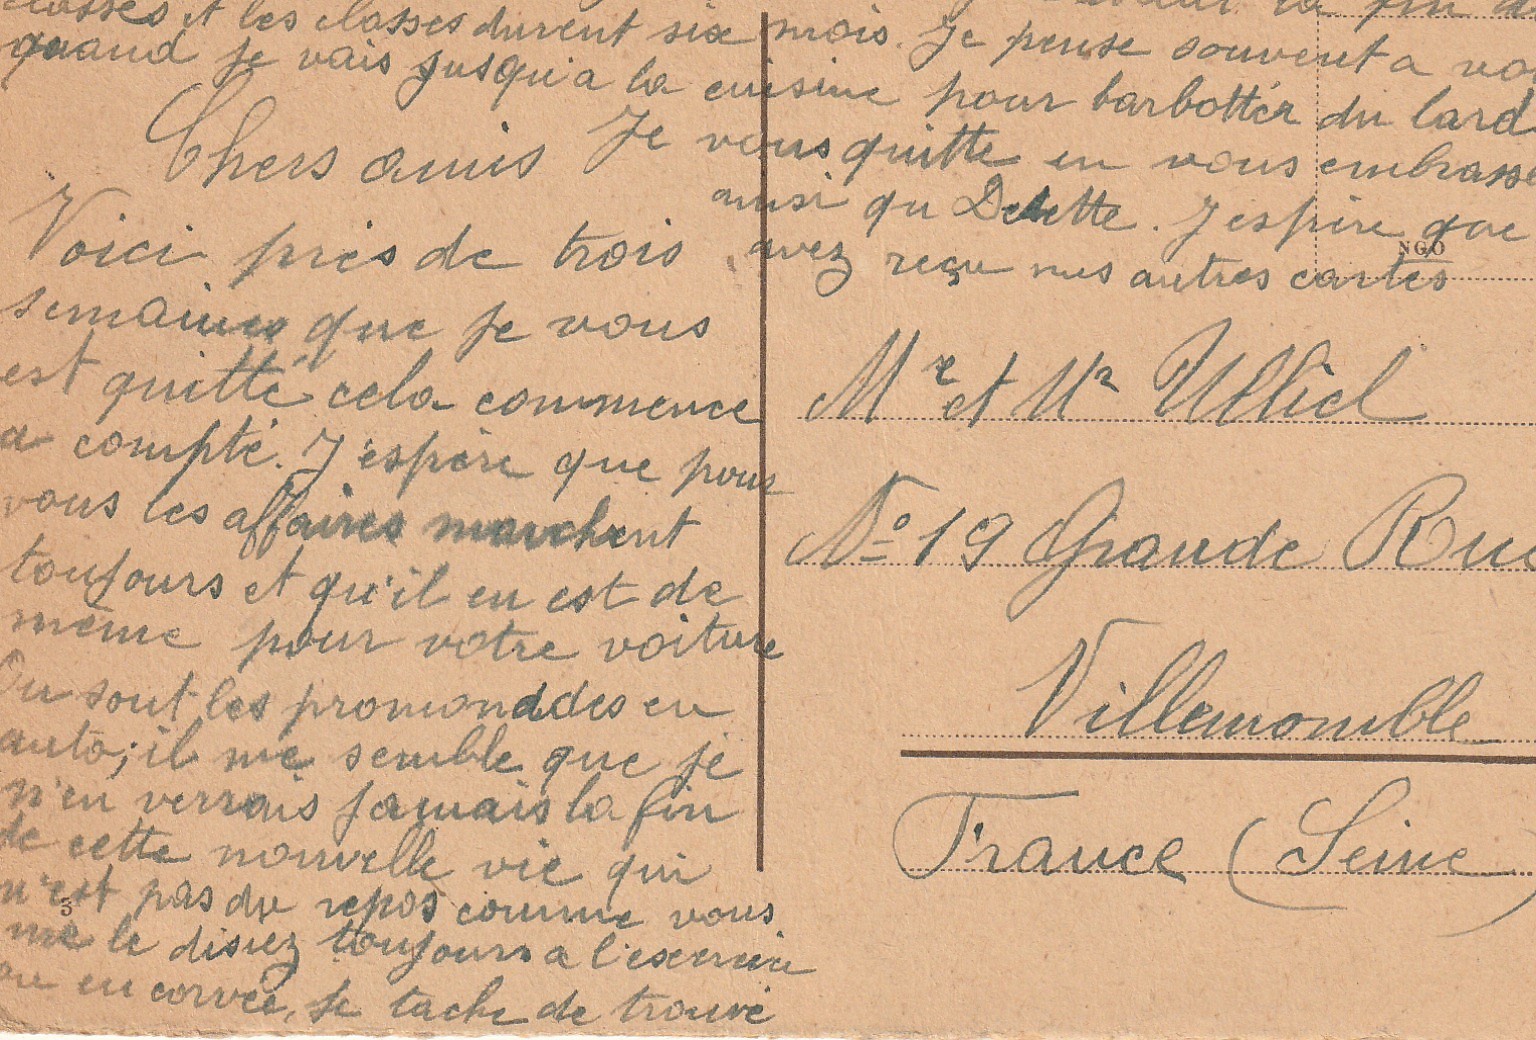 Chers amis
Voici près de trois
semaines que je vous
est quitté cela commence
a compté. J'espère que pour
vous les affaires marchent
toujours et qu'il en est de
même pour votre voiture
Ou sont les promonddes en
auto; il me semble que je
n'en verrais jamais la fin
de cette nouvelle vie qui
n'est pas du repos comme vous
me le disiez toujours a l'exercice
ou en corvée, je tache de trouvé
3
la fin de
classes et les classes durent six mois. Je pense souvent a vou
quand je vais jusqu'a la cuisine pour barbotter du lard
Je vous quitte en vous embrasse
ainsi qu Dedette. J'espère que
avez reçu mes autres cartes
NGO
Mr et Mr Ulliel
No 19 Grande Rue
Villemomble
France (Seine)